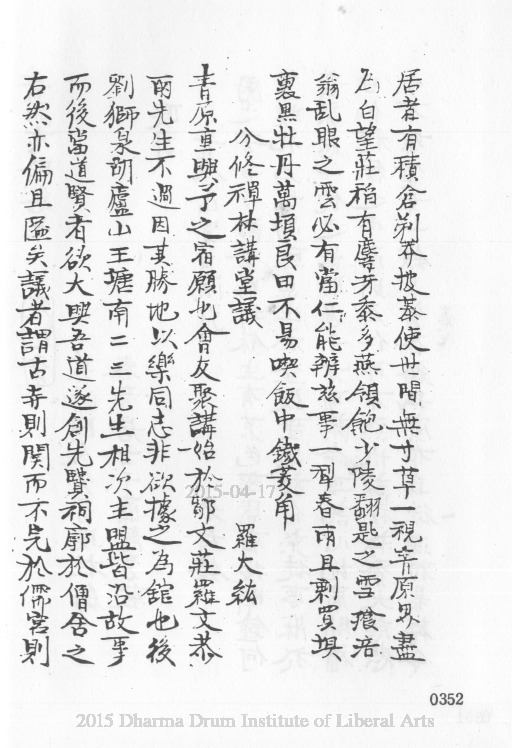 居者有積倉剃莽披蓁使世間無寸草一視青原界盡
為白望莊稻有麞牙黍多燕頷飽少陵翻匙之雪飡涪
翁乱眼之雲必有當仁能辨茲事一犁春雨且剩買堁
裏黑牡丹萬頃良田不易喫飯中鐵菱角
分修禪林講堂議
羅大紘
青原重興予之宿願也會友聚講始於鄒文莊羅文恭
兩先生不過因其勝地以樂同志非欲據之為舘也後
劉獅泉胡廬山王塘南二三先生相次主盟皆沿故事
而後當道賢者欲大興吾道遂創先賢祠廓於僧舍之
右然亦偏且隘矣議者謂古寺則関而不完於儒宮則
2015-04-17
0352
2015 Dharma Drum Institute of Liberal Arts